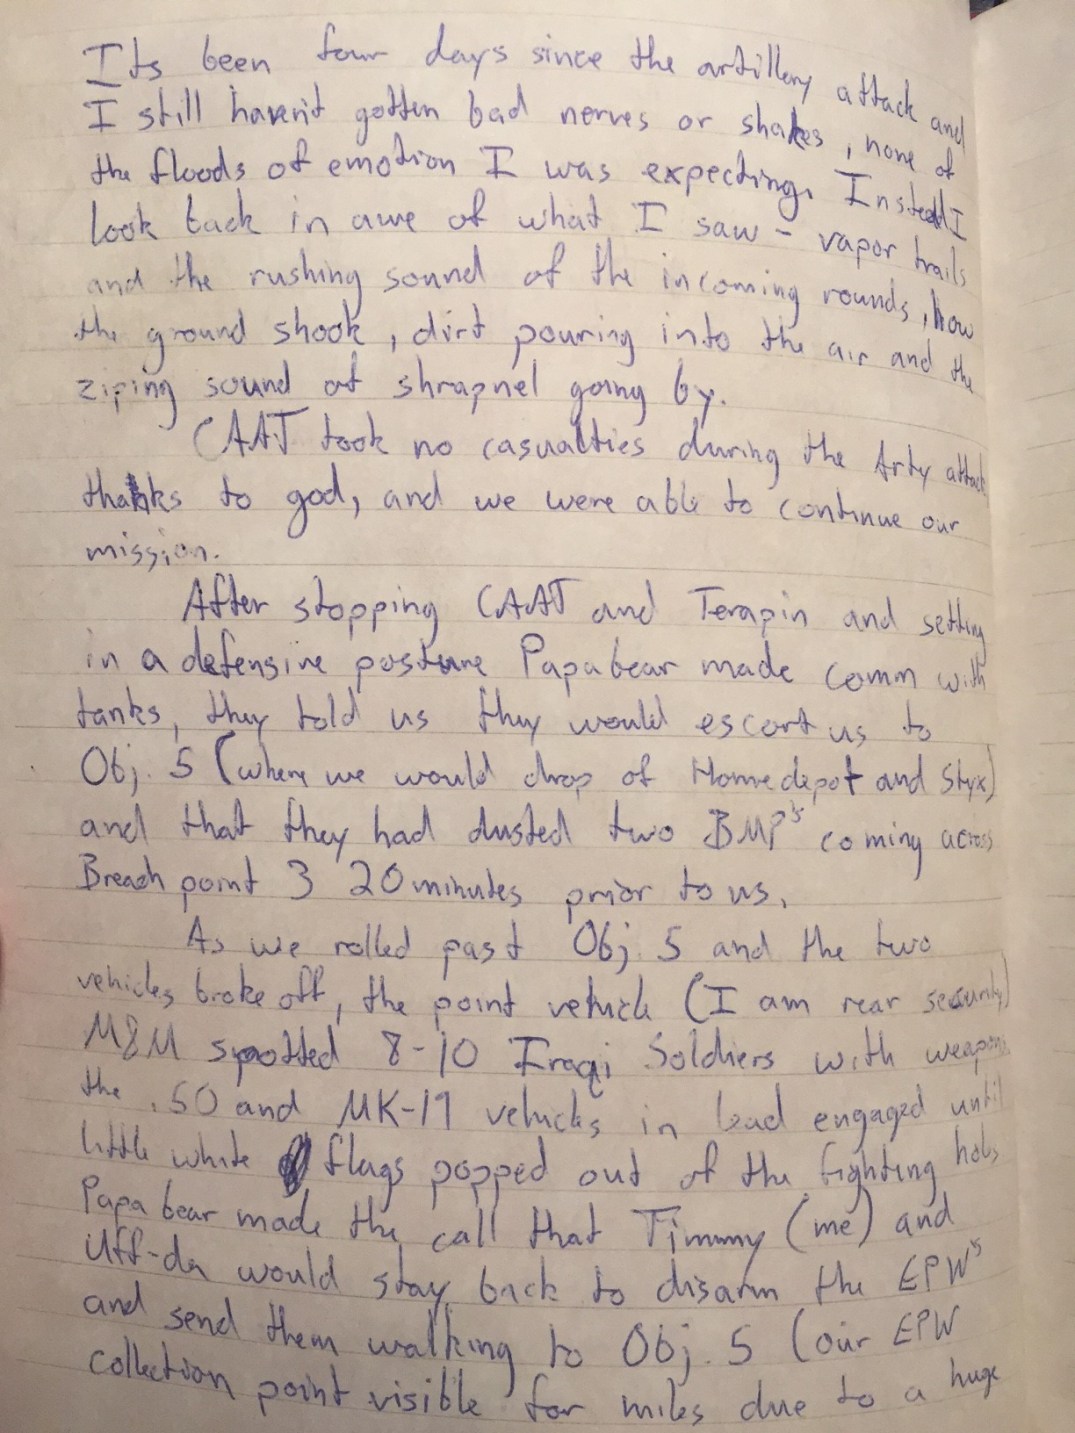 Its been four days since the artillery attack and
I still haven't gotten bad nerves or shakes, none of
the floods of emotion I was expecting. Instead I
look back in awe of what I saw - vapor trails
and the rushing sound of the incoming rounds, how
the ground shook, dirt pouring into the air and the
ziping sound of shrapnel going by.
CAAT took no casualties during the Arty attack
thanks to god, and we were able to continue our
mission.
After stopping CAAT and Terapin and setting
in a defensive posture Papabear made comm with
tanks, they told us they would escort us to
Obj. 5 (where we would drop of Homedepot and Styx)
and that they had dusted two BMP's coming across
Breach point 3 20 minutes prior to us.
As we rolled past Obj. 5 and the two
vehicles broke off, the point vehicle (I am rear security)
M&M spotted 8-10 Iraqi Soldiers with weapons
the .50 and MK-19 vehicles in lead engaged until
little white flags popped out of the fighting holes
Papa bear made the call that Timmy (me) and
Uff-da would stay back to disarm the EPW's
and send them walking to Obj. 5 (our EPW
collection point visible for miles due to a huge